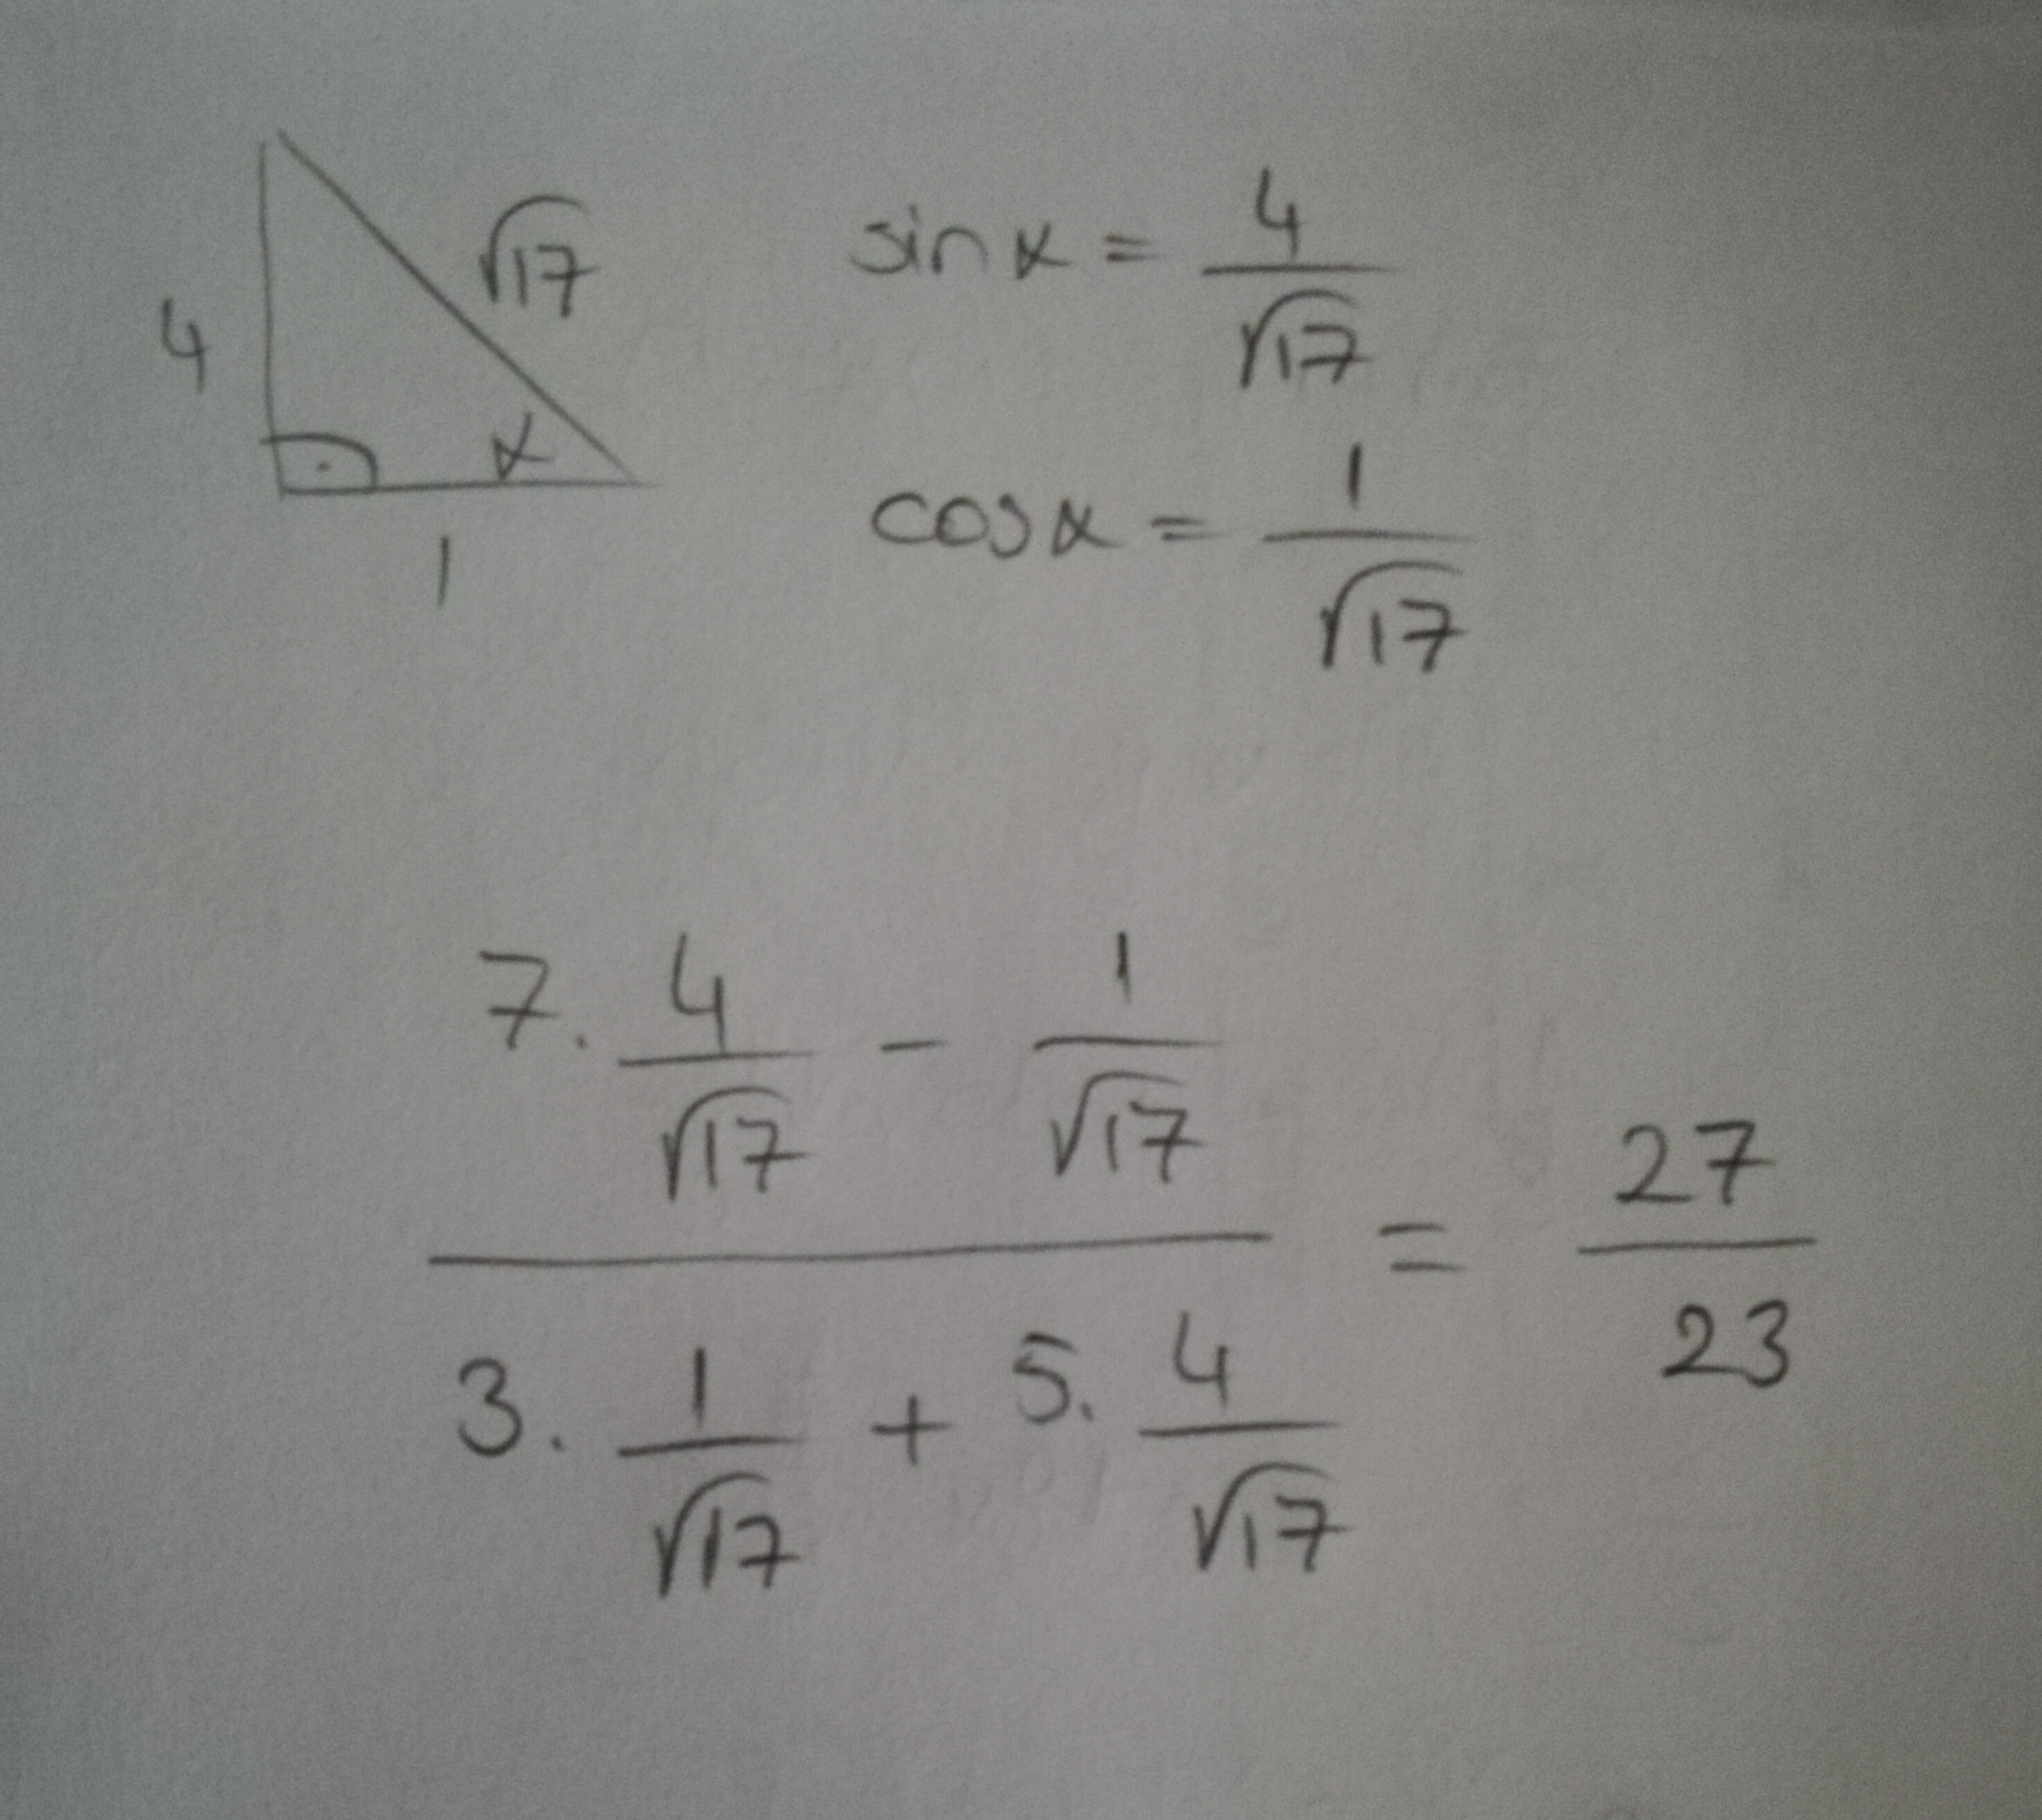 4
√17
α
1
sin α = 4/√17
cos α = 1/√17
7. 4/√17 − 1/√17
3. 1/√17 + 5. 4/√17
= 27/23